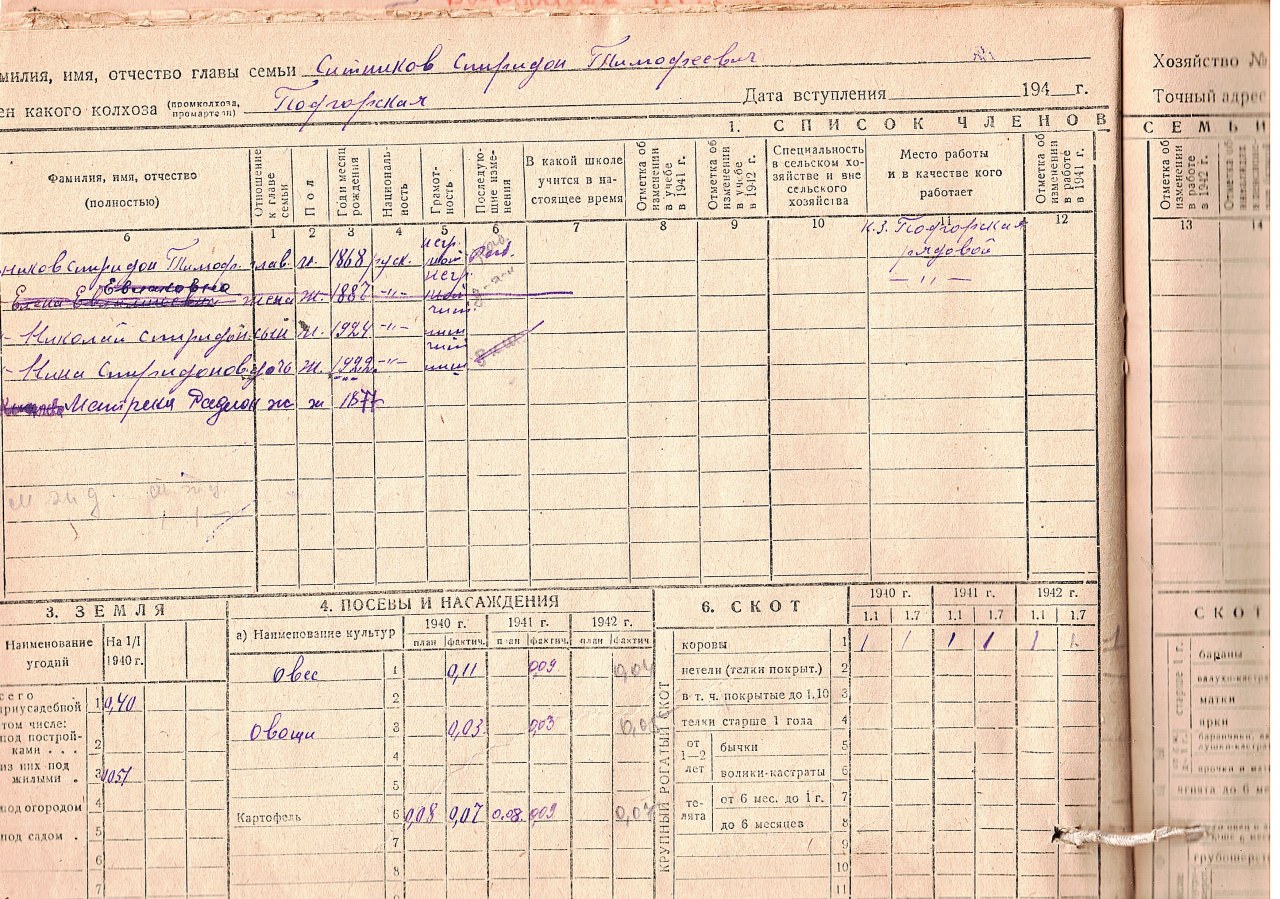 милия, имя, отчество главы семьи Ситников Спиридон Тимофеевич
Хозяйство №
ен какого колхоза (промколхоза, промартели) Подгорская Дата вступления 194 г.
Точный адрес
1. СПИСОК ЧЛЕНОВ
СЕМЬИ
Фамилия, имя, отчество (полностью)
Отношение к главе семьи
Пол
Год и месяц рождения
Националь-ность
Грамот-ность
Последую-щие изме-нения
В какой школе учится в на-стоящее время
Отметка об изменении в учебе в 1941 г.
Отметка об изменении в учебе в 1942 г.
Специальность в сельском хо-зяйстве и вне сельского хозяйства
Место работы и в качестве кого работает
Отметка об изменении в работе в 1941 г.
Отметка об изменении в работе в 1942 г.
б 1 2 3 4 5 6 7 8 9 10 11 12 13 14
ников Спиридон Тимоф. глав. м. 1868 руск. негр. К.З. Подгорская
рядовой
Евлаковна
Елена жена ж. 1887 -"- негр. -"-
Николай Спиридон сын м. 1924 -"-
Нина Спиридонов дочь ж. 1922 -"-
Матрена Радион ж ж 1877
3. ЗЕМЛЯ
Наименование угодий На 1/I 1940 г.
сего приусадебной 1 0,40
том числе: под построй-ками . . . 2
из них под жилыми . 3
под огородом 4
под садом . 5
6
7
4. ПОСЕВЫ И НАСАЖДЕНИЯ
а) Наименование культур 1940 г. 1941 г. 1942 г.
план фактич. план фактич. план фактич.
Овес 1 0,11 0,09
2
Овощи 3 0,03 0,03
4
5
Картофель 6 0,08 0,07 0,08 0,09 0,07
7
8
6. СКОТ
1940 г. 1941 г. 1942 г.
1.1 1.7 1.1 1.7 1.1 1.7
КРУПНЫЙ РОГАТЫЙ СКОТ
коровы 1 1 1 1 1 1 1
нетели (телки покрыт.) 2
в т. ч. покрытые до 1.10 3
телки старше 1 года 4
от 1—2 лет бычки 5
волики-кастраты 6
те-лята от 6 мес. до 1 г. 7
до 6 месяцев 8
9
10
11
СКОТ
старше 1 г.
бараны
валухи-кастра
матки
ярки
ягнята до 6 ме